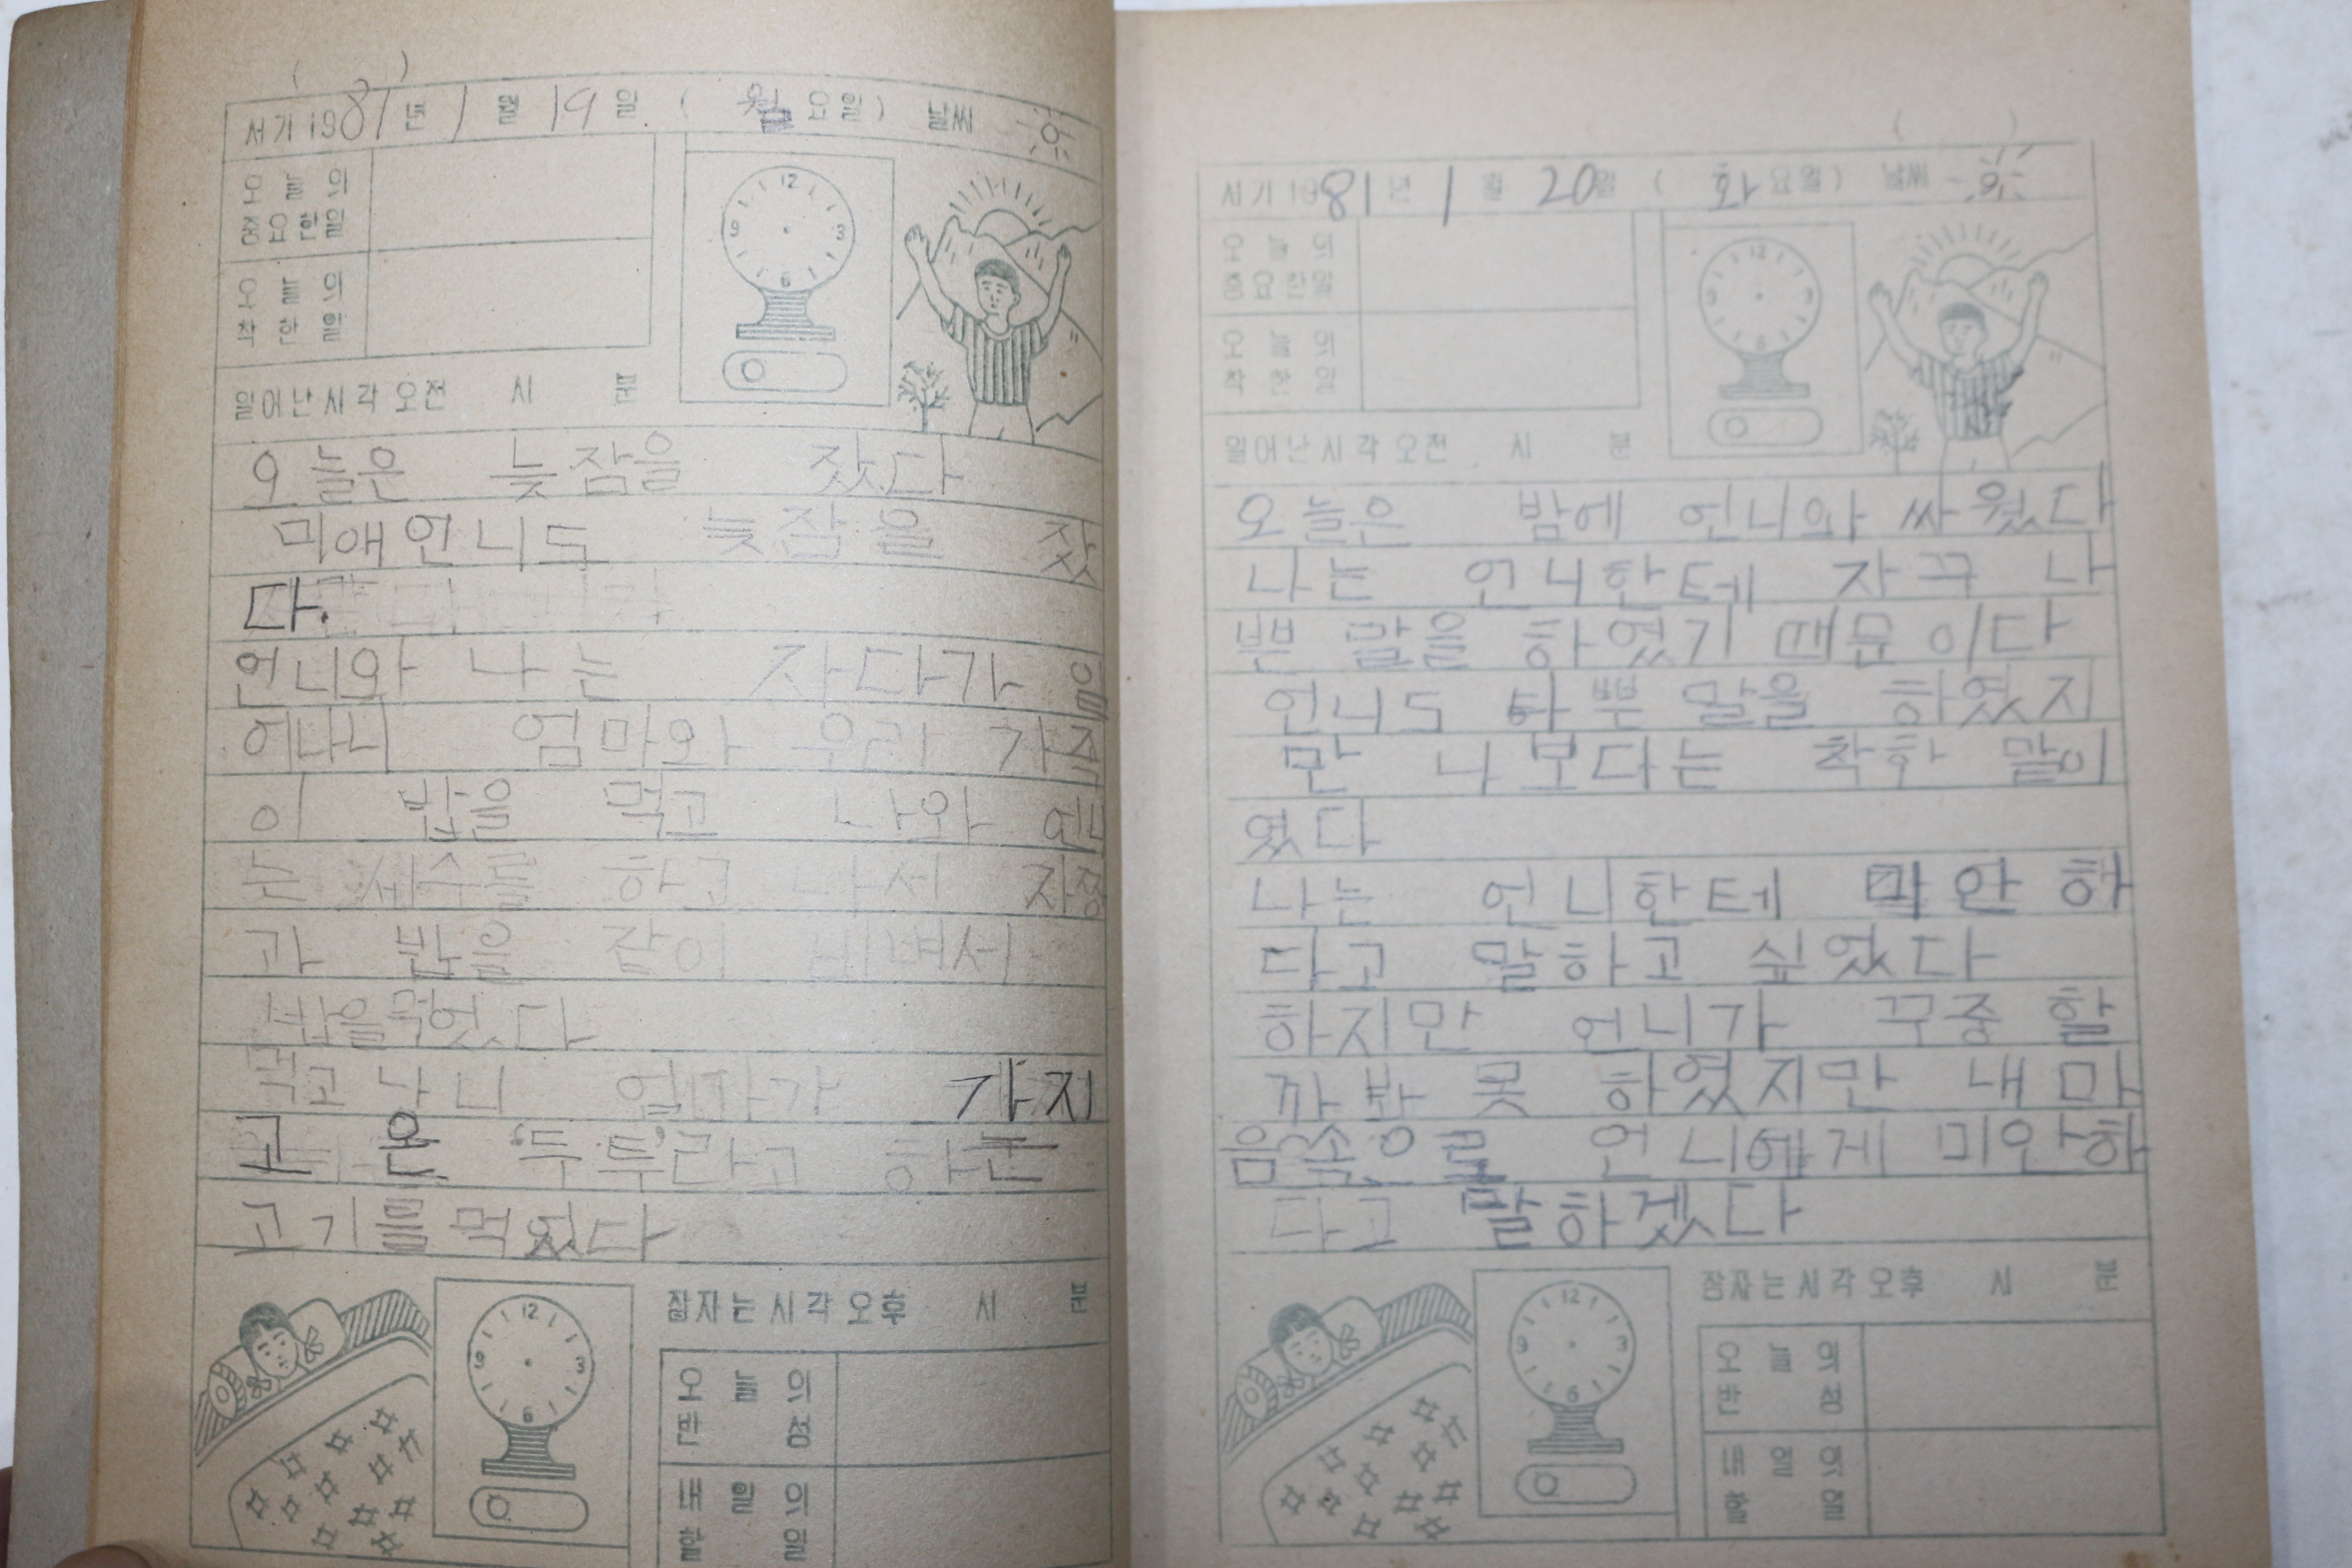 (          )
서기 1981년 1월 19일 ( 월요일) 날씨
오늘의
중요한일
오늘의
착한일
12
3
6
9
일어난시각 오전 시 분
오늘은 늦잠을 잤다
미애언니도 늦잠을 잤
다.
언니와 나는 자다가 일
어나니 엄마와 우리 가족
이 밥을 먹고 나와 언니
는 세수를 하고 나서 자장
과 밥을 같이 비벼서
밥을먹었다
먹고 나니 엄마가 가지
고 온 '두투'라고 하는
고기를먹었다
12
3
6
9
잠자는시각 오후 시 분
오늘의
반성
내일의
할일
(          )
서기 1981년 1월 20일 ( 화요일) 날씨
오늘의
중요한일
오늘의
착한일
12
3
6
9
일어난시각 오전 시 분
오늘은 밤에 언니와 싸웠다
나는 언니한테 자꾸 나
쁜 말을 하였기 때문이다
언니도 나쁜 말을 하였지
만 나보다는 착한 말이
였다
나는 언니한테 미안하
다고 말하고 싶었다
하지만 언니가 꾸중 할
까봐 못 하였지만 내 마
음속으로 언니에게 미안하
다고 말하겠다
12
3
6
9
잠자는시각 오후 시 분
오늘의
반성
내일의
할일